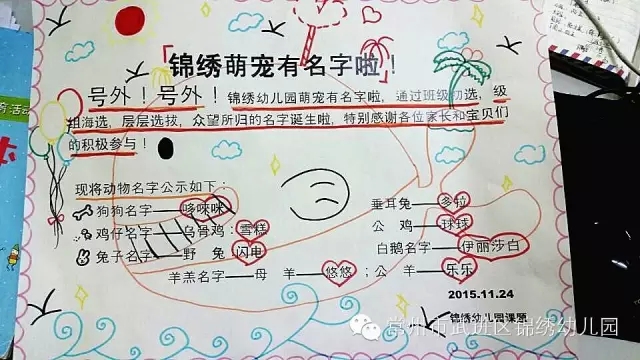 锦绣萌宠有名字啦！
号外！号外！锦绣幼儿园萌宠有名字啦，通过班级初选，级
组海选，层层选拔，众望所归的名字诞生啦，特别感谢各位家长和宝贝们
的积极参与！
现将动物名字公示如下：
狗狗名字——哆咪咪
垂耳兔——多拉
鸡仔名字——乌骨鸡：雪糕
公 鸡——球球
兔子名字——野 兔：闪电
白鹅名字——伊丽莎白
羊羔名字——母 羊——悠悠；公 羊——乐乐
2015.11.24
锦绣幼儿园课题
常州市武进区锦绣幼儿园